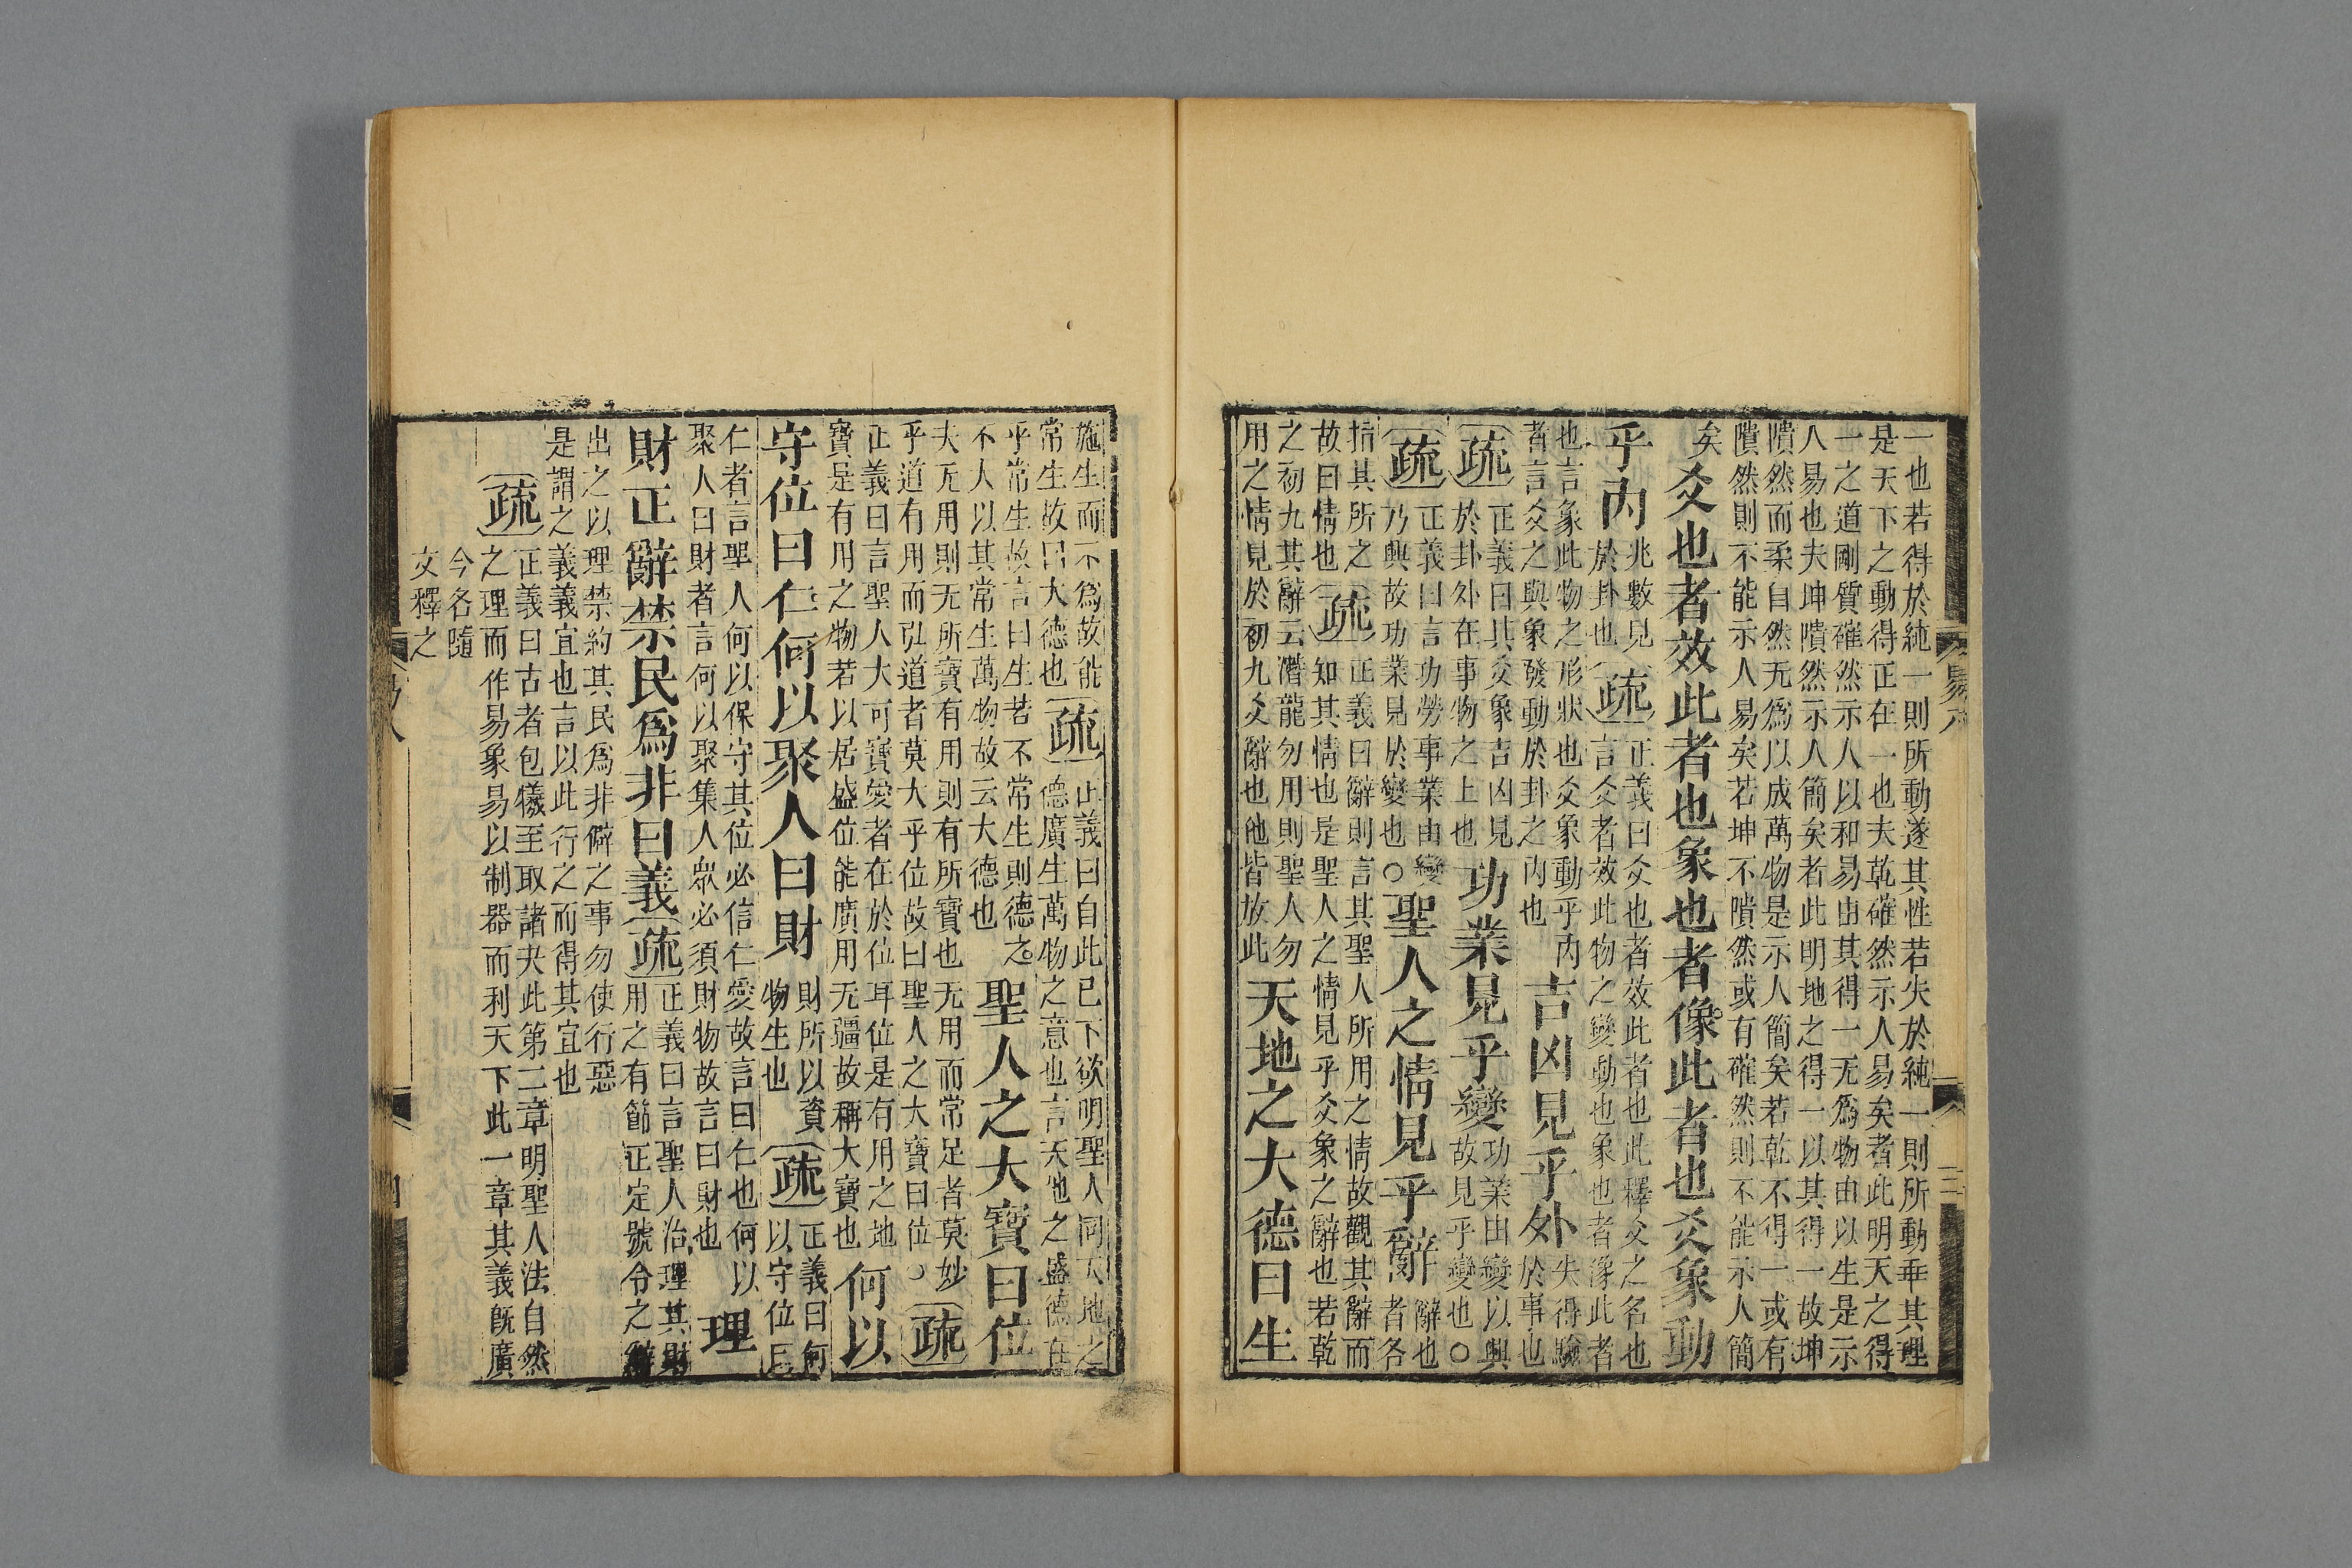 一也若得於純一則所動遂其性若失於純一則所動乖其理
是天下之動得正在一也夫乾確然示人易矣者此明天之得
一之道剛質確然示人以和易由其得一无爲物由以生是示
人易也夫坤隤然示人簡矣者此明地之得一以其得一故坤
隤然而柔自然无爲以成萬物是示人簡矣若乾不得一或有
隤然則不能示人易矣若坤不隤然或有確然則不能示人簡
矣
爻也者效此者也象也者像此者也爻象動
乎內
兆數見
於卦也
疏
正義曰爻也者效此者也此釋爻之名也
言爻者效此物之變動也象也者像此者
也言象此物之形狀也爻象動乎內
者言爻之與象發動於卦之內也
吉凶見乎外
失得驗
於事也
疏
正義曰其爻象吉凶見
於卦外在事物之上也
功業見乎變
功業由變以興
故見乎變也○
疏
正義曰言功勞事業由變
乃興故功業見於變也○
聖人之情見乎辭
辭也
者各
指其所之
故曰情也
疏
正義曰辭則言其聖人所用之情故觀其辭而
知其情也是聖人之情見乎爻象之辭也若乾
之初九其辭云潛龍勿用則聖人勿
用之情見於初九爻辭也他皆放此
天地之大德曰生
易八
三
施生而不爲故能
常生故曰大德也
疏
正義曰自此已下欲明聖人同天地之
德廣生萬物之意也言天地之盛德在
乎常生故言曰生若不常生則德之
不大以其常生萬物故云大德也
聖人之大寶曰位
夫无用則无所寶有用則有所寶也无用而常足者莫妙
乎道有用而弘道者莫大乎位故曰聖人之大寶曰位○
疏
正義曰言聖人大可寶愛者在於位耳位是有用之地
寶是有用之物若以居盛位能廣用无疆故稱大寶也
何以
守位曰仁何以聚人曰財
財所以資
物生也
疏
正義曰何
以守位曰
仁者言聖人何以保守其位必信仁愛故言曰仁也何以
聚人曰財者言何以聚集人眾必須財物故言曰財也
理
財正辭禁民爲非曰義
疏
正義曰言聖人治理其財
用之有節正定號令之辭
出之以理禁約其民爲非僻之事勿使行惡
是謂之義義宜也言以此行之而得其宜也
疏
正義曰古者包犧至取諸夬此第二章明聖人法自然
之理而作易象易以制器而利天下此一章其義旣廣
今各隨
文釋之
易八
四